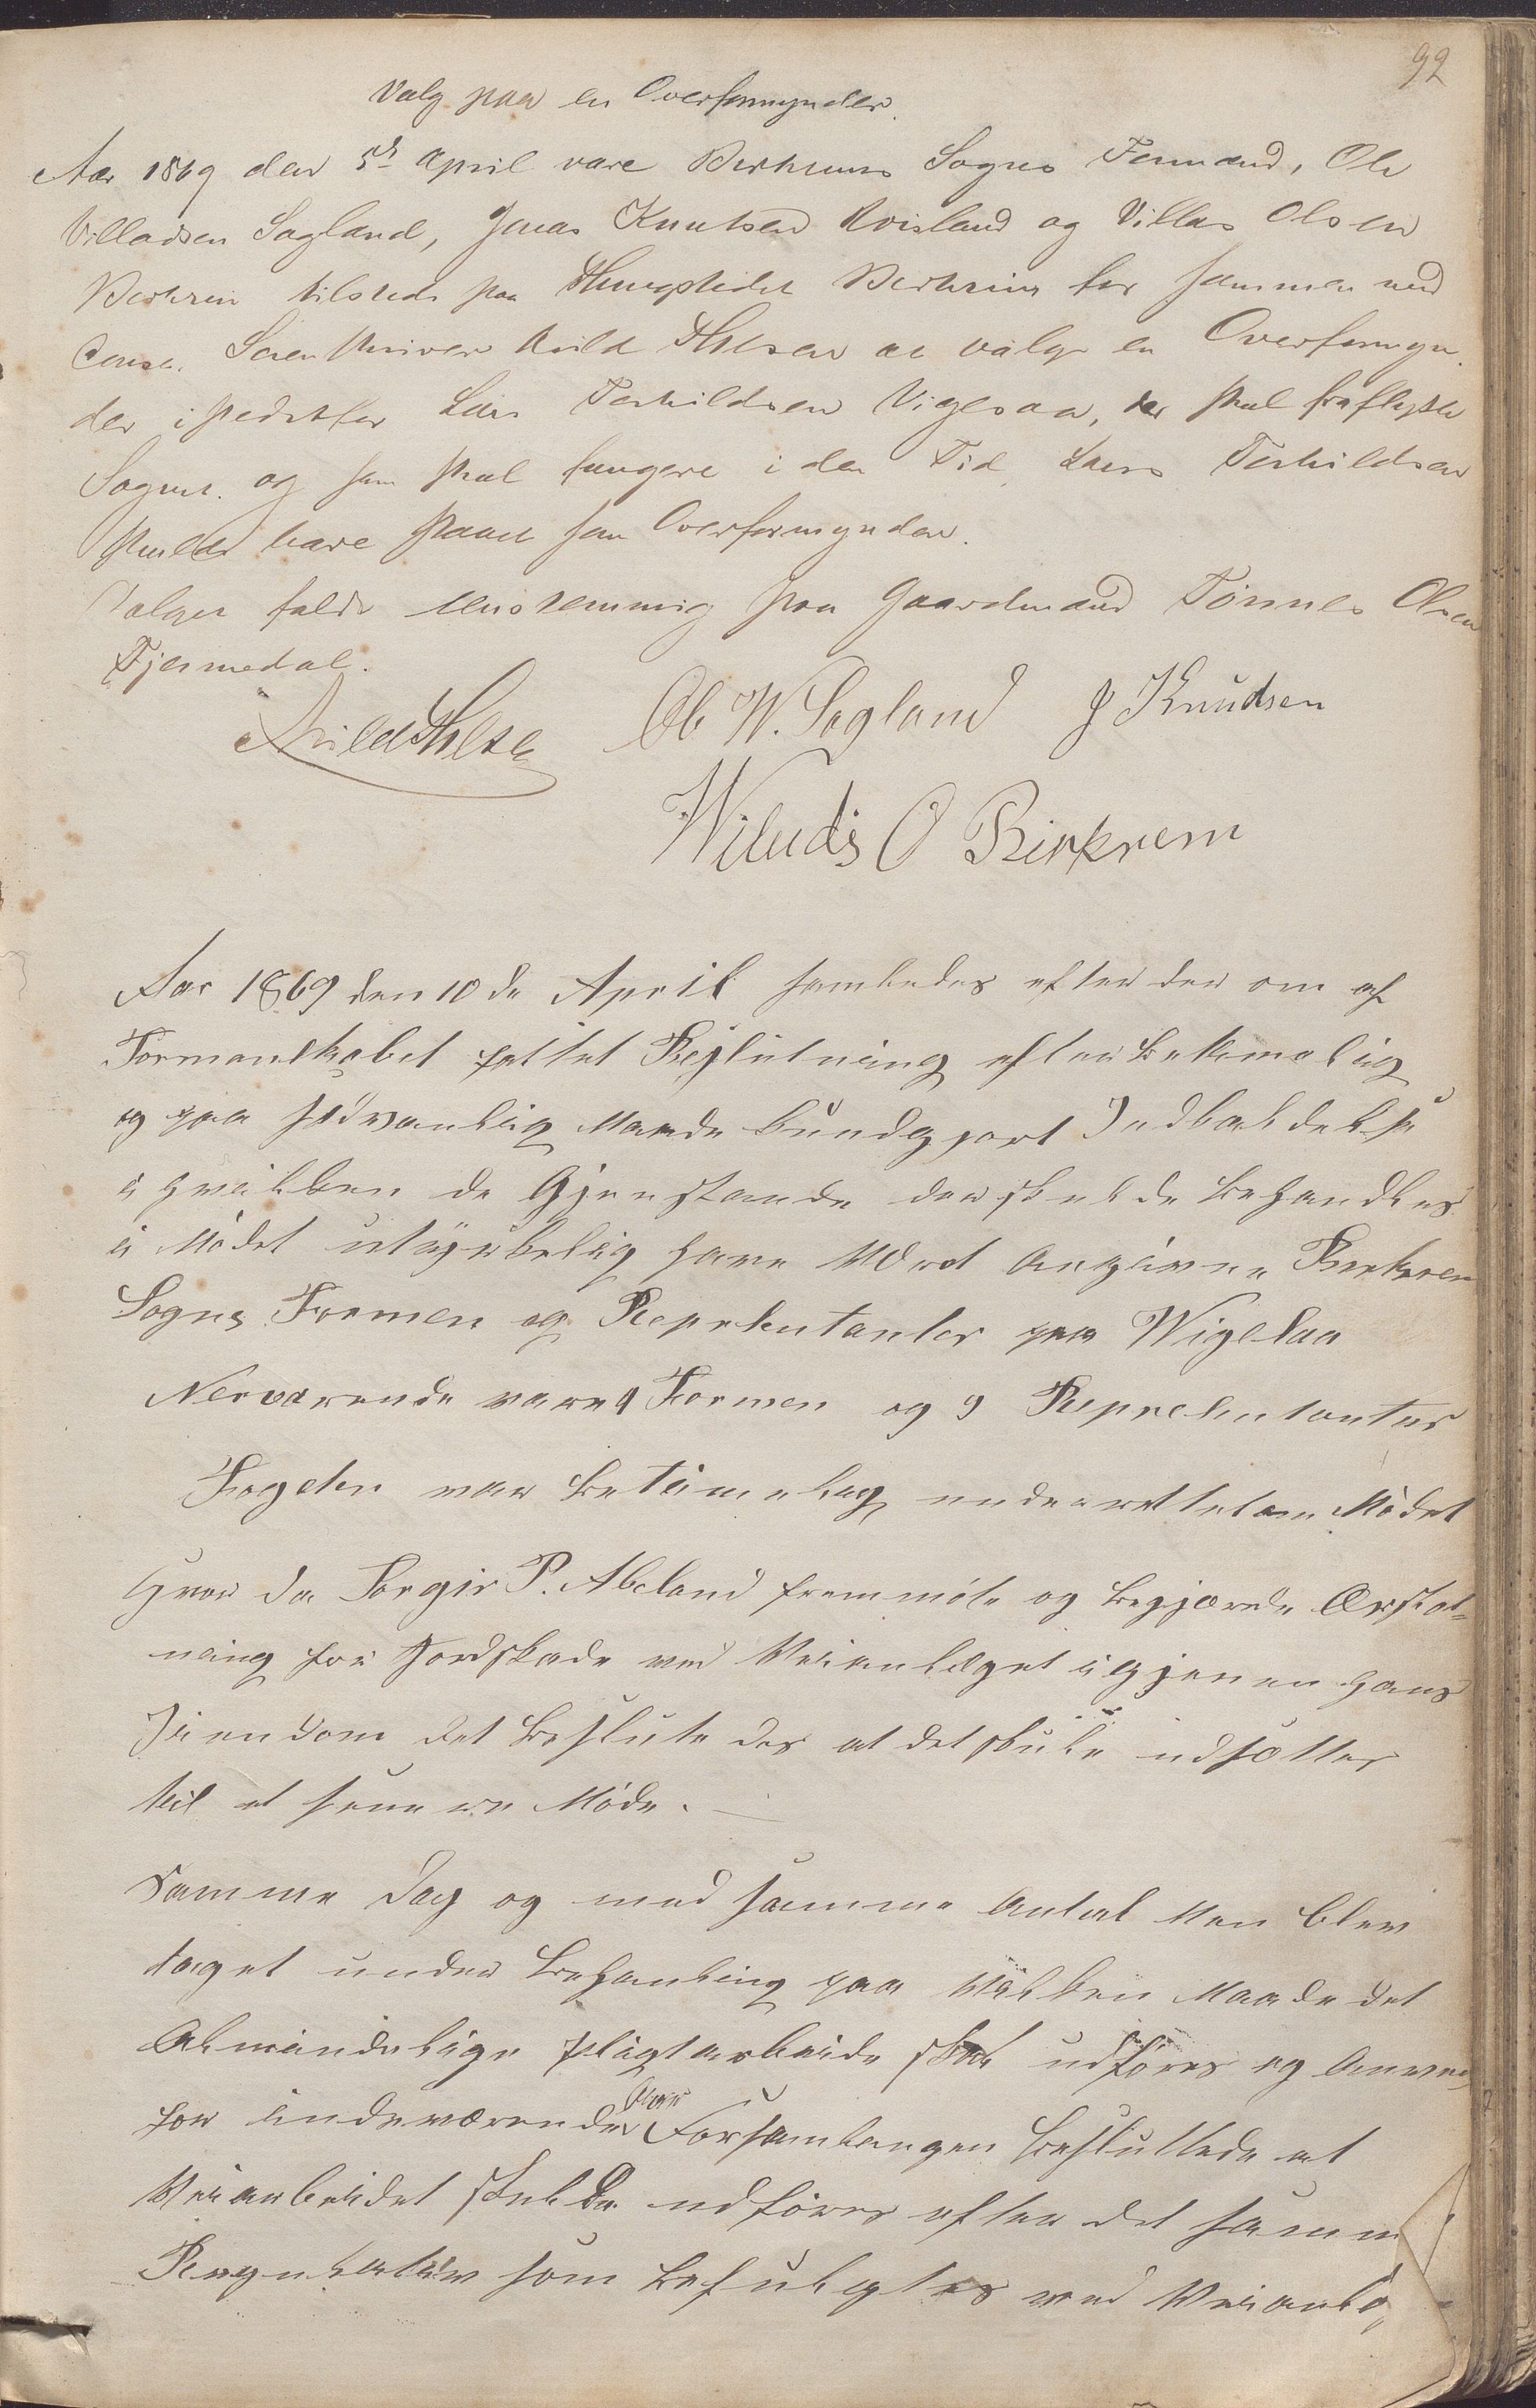 92
Valg paa en Overformynder.
Aar 1869 den 5te April vare Birkrems Sogns Formænd, Ole
Villadsen Sagland, Jonas Knutsen Kvisland og Villas Olsen
Birkrem tilstede paa Thingstedet Birkrem for sammen med
Const. Sorenskriver Arild Thilsen at vælge en Overformyn-
der istedetfor Lars Torkildsen Vigesaa, der skal fraflytte
Sognet og som skal fungere i den Tid, Lars Torkildsen
skulde have staaet som Overformynder.
Valget faldt eenstemmig paa Gaardmand Tönnes Olsen
Tjørnedal.
Ole W. Sagland J Knudsen
Wilads O Birkrem
Aar 1869 den 10de April samledes efter der om af
Formanskabet fattet Beslutning efter bekomelig
og paa sædvanlig Maade kundgjort Indkaldelse
i hvilken de Gjenstande der skulde behandles
i Mödet utrykkelig have Været Angivne Birkrem
Sogns Formen og Represtentanter paa Wigesaa
Nerværende vare 4 Formen og 9 Represtentanter
Fogden var betimelig underrettet om Mödet
Hvor da Sorgir P. Aboland fremmöte og begjærede Erstat-
ning for Jordskade ved Veianlæget igjenem hans
Jiendom det beslutedes at det skule udsættes
til et senere Möde. —
Samme Dag og med samme Antal Men blev
taget under behanling paa vilken Maade det
Almindelige pligtarbeide skal udföres og Anven
for indeværende Aar Forsamlingen besluttede at
Veiarbeidet skulde udföres efter det samm
Regulativ som befulgtes ved Veianlæ